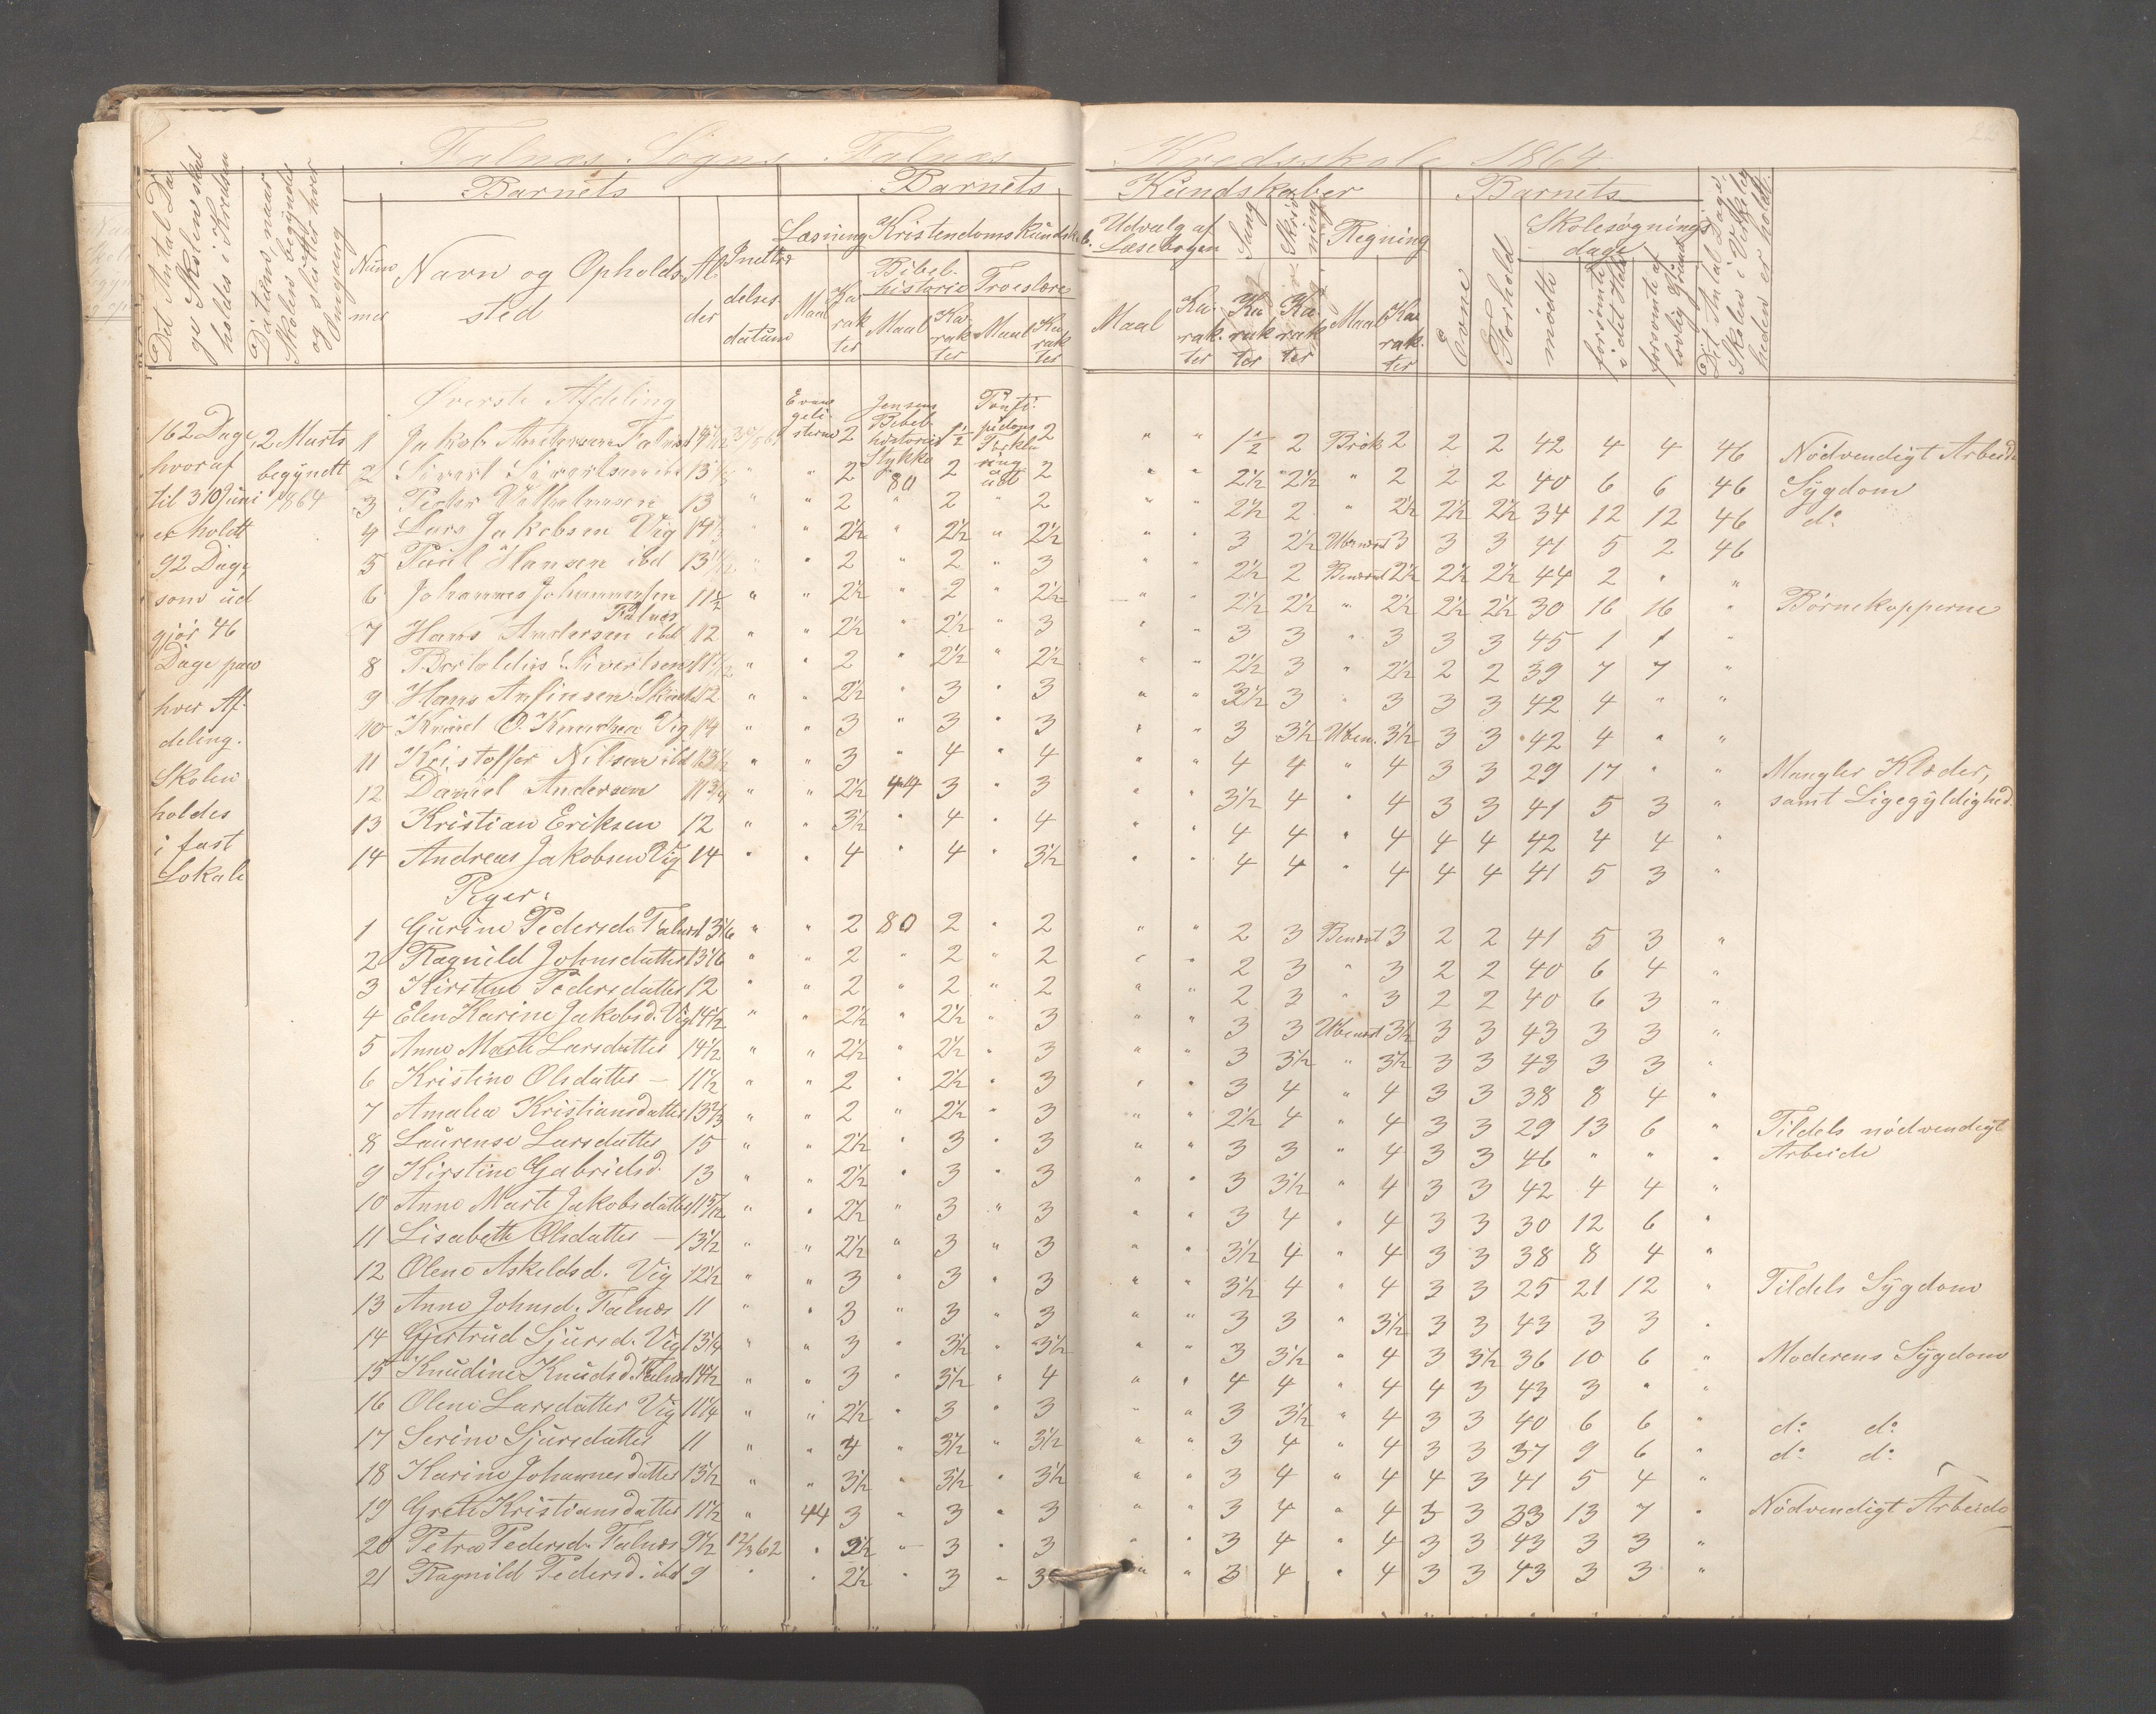 Falnæs Sogns Falnæs Kredsskole 1864.
22
Det Antal Da-
ge Skolen skal
holdes i Kredsen
Datum, naar
Skolen begyndes
og slutter hver
Omgang
Barnets
Num
mer
Navn og Opholds-
sted
Al-
der
Indtræ
delses
datum
Barnets Kundskaber
Læsning
Maal
Ka
rak
ter
Kristendomskundsk.
Bibel-
historie
Maal
Ka-
rak
ter
Troeslære
Maal
Ka
rak
ter
Udvalg af
Læsebogen
Maal
Ka-
rak-
ter
Sang
Ka
rak
ter
Skriv
ning
Ka-
rak
ter
Regning
Maal
Ka
rak-
ter
Barnets
Evne
Forhold
Skolesøgnings
dage
mödte
forsömte
i det Hele
forsömte af
lovlig Grund
Det Antal Dage
Skolen i Virkelig
heden er holdt.
162 Dage,
hvoraf
til 30 Juni
er holdt
92 Dage,
som ud
gjör 46
Dage paa
hver Af-
deling.
Skolen
holdes
i fast
Lokale
2 Marts
begyndt
1864
Øverste Afdeling
Evan
geli-
sterne
Jensens
Bibel-
historie
Stykke
80
Pontop
pidans
Forkla
ring
ud
1 Jakob Andersen Falnæs 2 1½ 2 " " 1½ 2 Brök 2 2 2 42 4 4 46 Nödvendigt Arbeide
2 Sivert Sivertsen ibd 13 " " 2 2 2 " " 2½ 2½ " 2 2 2 40 6 6 46 Sygdom
3 Peder Vilhelmsen 13 " " 2 " 2 2 " " 2½ 2 " 2½ 2½ 2½ 34 12 12 46 do
4 Lars Jakobsen Vig 14 " " 2½ " 2½ " 2½ " " 3 2½ Ubenævnt 3 3 3 41 5 2 46
5 Poul Hansen ibd 13½ " " 2 " 2 " 3 " " 2½ 2 Benævnt 2½ 2½ 2½ 44 2 " "
6 Johannes Johannessen Falnæs 11½ " " 2½ " 2 " 2½ " " 2½ 2½ " 2½ 2½ 2½ 30 16 16 " Börnekopperne
7 Hans Andersen ibd 12 " " 2½ " 2½ " 3 " " 3 3 " 3 3 3 45 1 1 "
8 Bertoldius Sivertsen 11½ " " 2 " 2½ " 2½ " " 2½ 3 " 2½ 2 2 39 7 7 "
9 Hans Anfinsen 12 " " 2½ " 3 " 3 " " 3 " 3 3 3 42 4 " "
10 Knud O. Knudsen Vig 14 " " 3 " 3 " 3 " " 3 3½ Uben. 3½ 3 3 42 4 " "
11 Kristoffer Nilsen ibd 13½ " " 3 " 4 " 4 " " 4 4 " 4 3 3 29 17 " " Mangler Klæder,
12 Daniel Andersen 11¾ " " 2½ 44 3 " 3 " " 3½ 4 " 4 3 3 41 5 3 " samt Ligegyldighed.
13 Kristian Eriksen 12 " " 3½ " 4 " 4 " " 4 4 " 4 4 4 42 4 4 "
14 Andreas Jakobsen Vig 14 " " 4 " 4 " 3½ " " 4 4 " 4 4 4 41 5 3 "
Piger.
1 Gurine Pedersd. Falnæs 13⅙ " " 2 80 2 " 2 " " 2 3 Benævnt 3 2 2 41 5 3 "
2 Ragnild Johnsdatter 13⅙ " " 2 " 2 " 2 " " 2 3 " 3 2 2 40 6 4 "
3 Kirstine Pedersdatter 12 " " 2 " 2 " 2 " " 2 3 " 3 2 2 40 6 3 "
4 Elen Karine Jakobsd. Vig 14½ " " 2½ " 2½ " 3 3 3 Ubenævnt 3½ 3 3 43 3 3 "
5 Anne Marte Larsdatter 14½ " " 2½ " 2½ " 3 " " 3 3½ " 3½ 3 3 43 3 3 "
6 Kristine Olsdatter – 11½ " " 2 " 2½ " 3 " " 3 4 " 4 3 3 38 8 4 "
7 Amalia Kristiansdatter 13⅔ " " 2 " 2½ " 3 " " 2½ 4 " 4 3 3 29 13 6 " Tildels nödvendigt
8 Laurense Larsdatter 15 " " 2½ " 3 " 3 " " 3 3 " 4 3 3 46 " " " Arbeide
9 Kirstine Gabrielsd. 13 " " 2½ " 3 " 3 " " 3 3½ " 4 3 3 42 4 4 "
10 Anne Marte Jakobsdatter " " 2½ " 3 " 3 " " 3 4 " 4 3 3 30 12 6 "
11 Lisabeth Olsdatter – 13½ " " 2½ " 3 " 3 " " 3½ 4 " 4 3 3 38 8 4 "
12 Olene Askeldsd. Vig 12½ " " 3 " 3 " 3 " " 3½ 4 " 4 3 3 25 21 12 " Tildels Sygdom
13 Anne Johnsd. Falnæs 11 " " 3 " 3 " 3 " " 3 3 " 3½ 3 3 43 3 3 "
14 Gjertrud Sjursd. Vig 13¼ " " 3 " 3½ " 3½ " " 3 3½ " 4 3 3½ 36 10 6 " Moderens Sygdom
15 Knudine Knudsd. Falnæs 14½ " " 3 " 3½ " 4 " " 4 4 " 4 4 3 43 3 " "
16 Oleni Larsdatter Vig 11¼ " " 2½ " 3 " 3 " " 3 3½ " 4 3 3 40 6 6 " do do
17 Serine Sjursdatter 11 " " " 3½ " 3½ " " 3 4 " 4 3 3 37 9 6 " do do
18 Karine Johannesdatter 13½ " " 3½ " 3½ " 3½ " " 3 4 " 4 4 3 41 5 4 "
19 Grete Kristiansdatter 11½ " 44 3 " 3 " 3 " " 3 4 " 4 3 3 33 13 7 " Nödvendigt Arbeide
20 Petra Pedersd. Falnæs 9½ 12/3 62 " 2½ " 3 " 3 " " 3 4 " 4 3 3 43 3 3 "
21 Ragnild Pedersd. ibd 9 " " 2½ " 3 " 3 " " 3 4 " 4 3 3 43 3 3 "